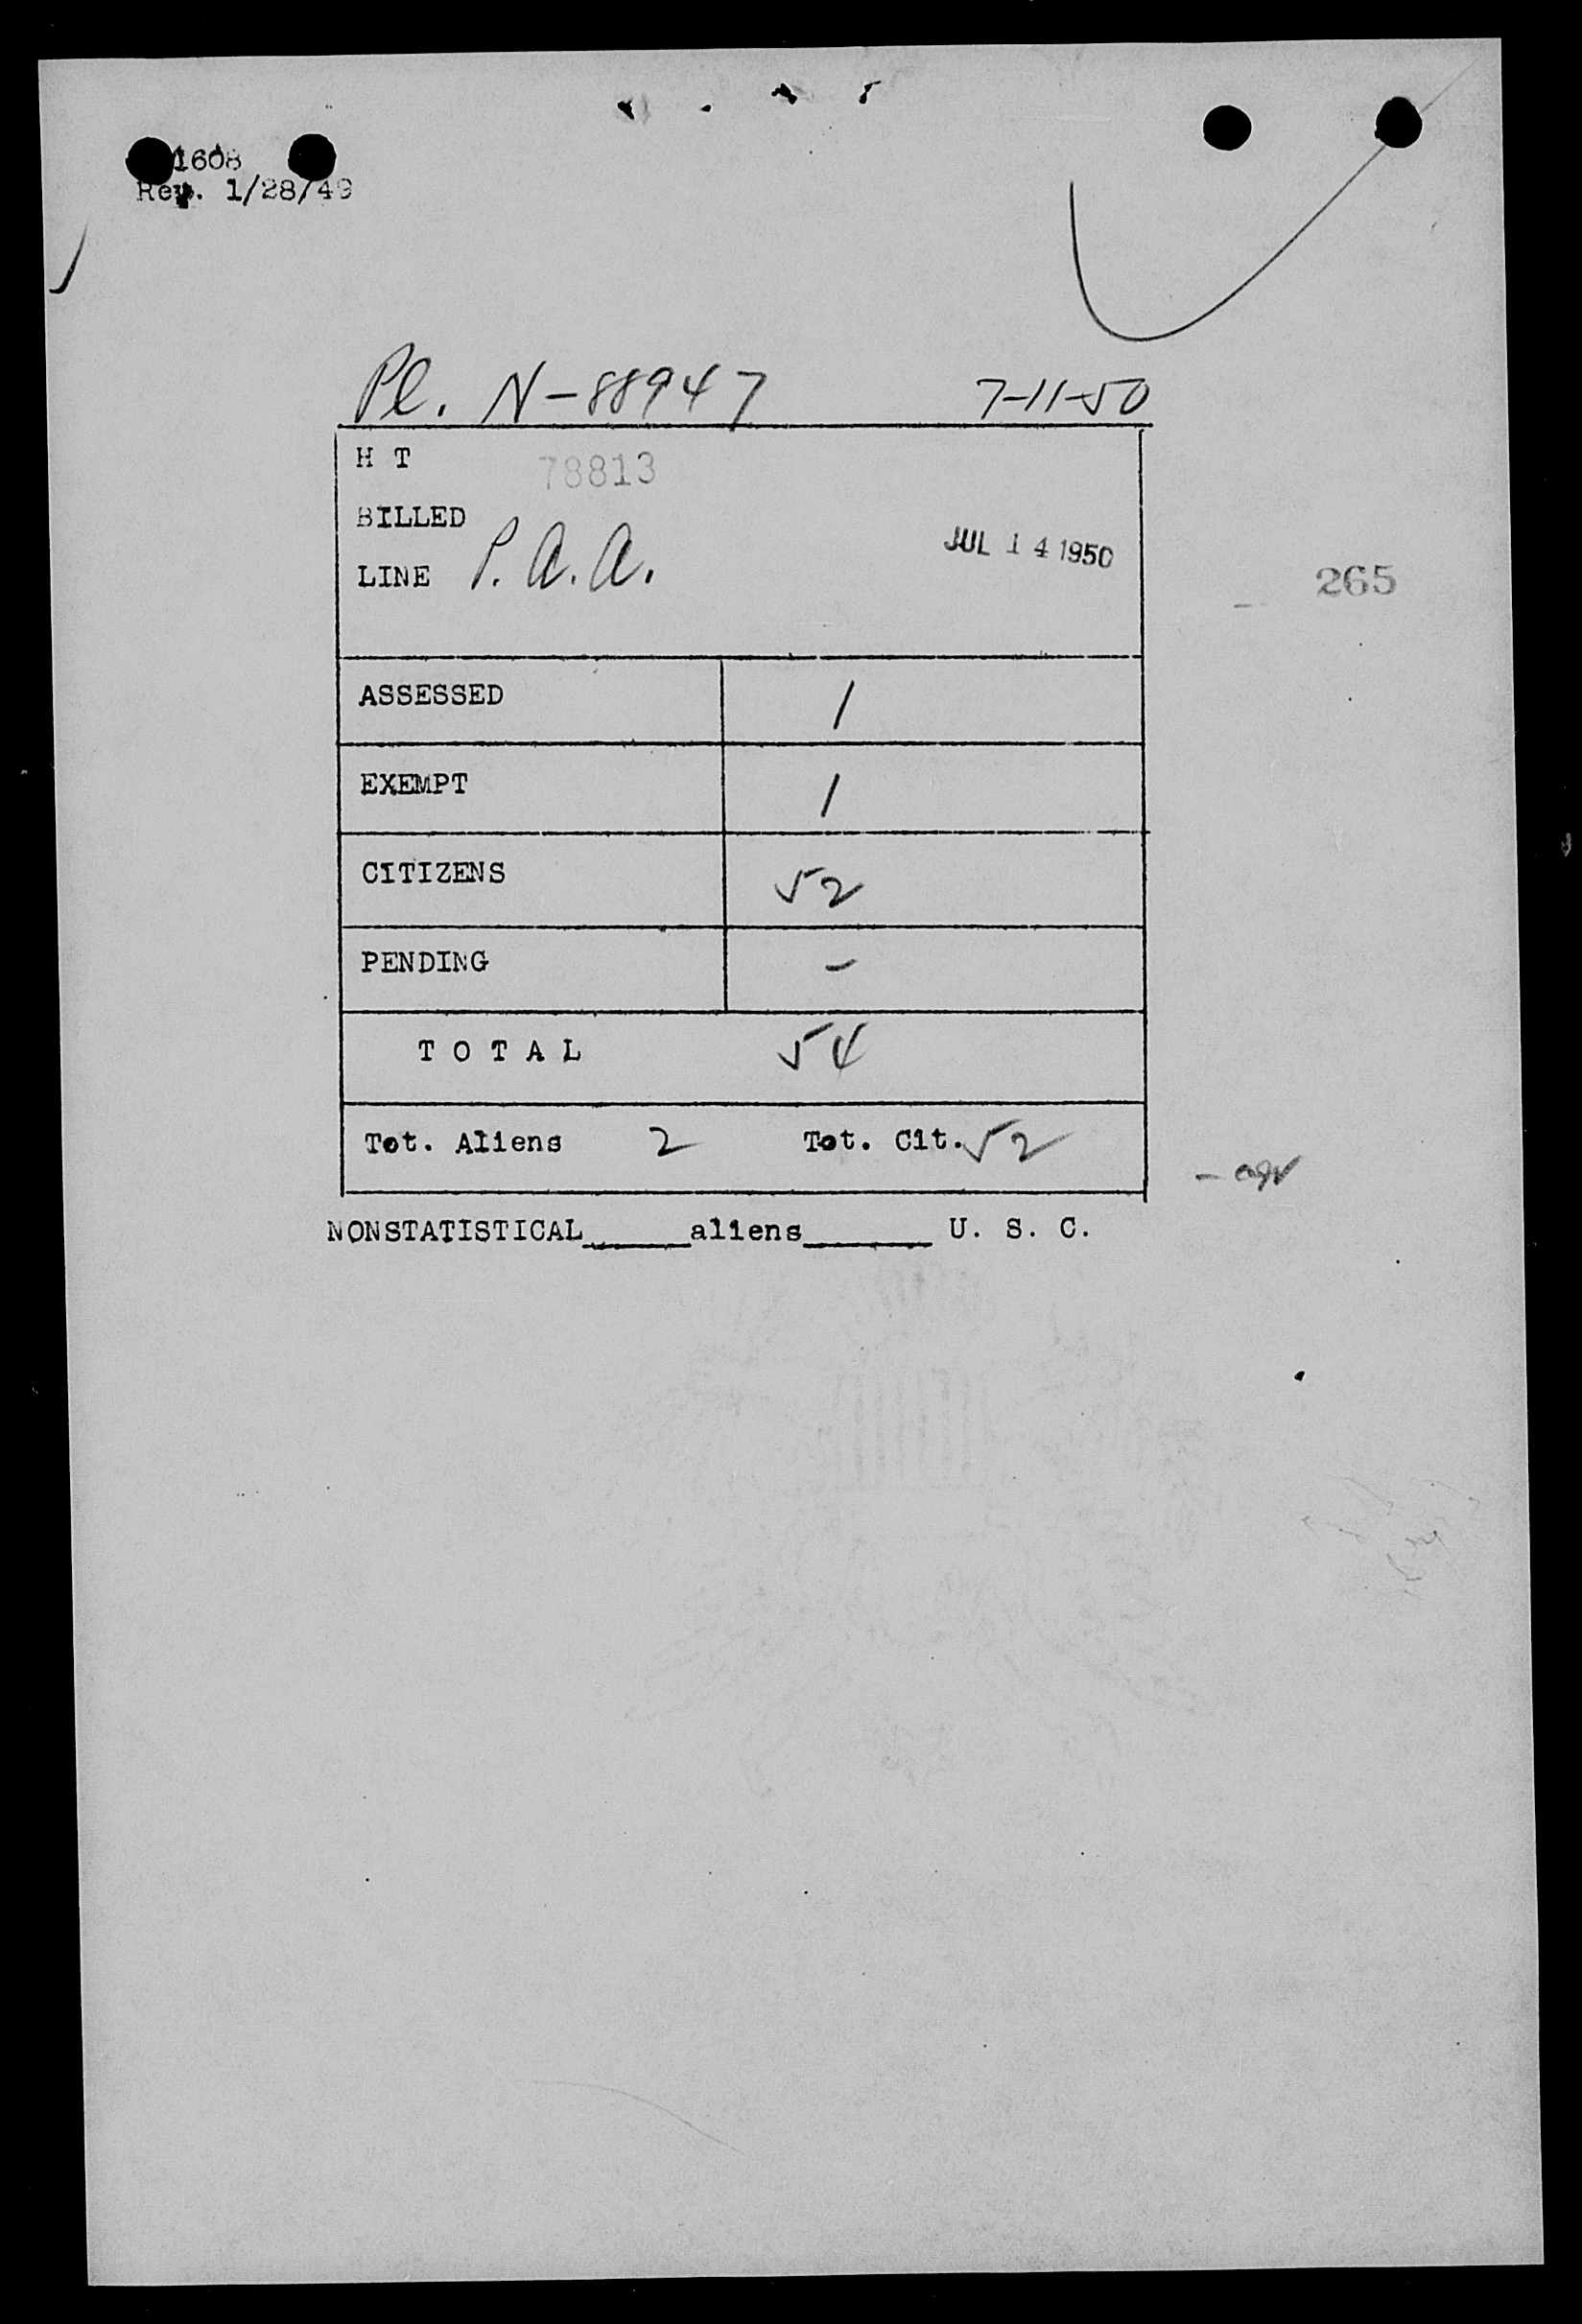 1608
Rev. 1/28/49
Pl. N-88947 7-11-50
H T 78813
BILLED
JUL 14 1950
LINE P. A. A.
265
ASSESSED 1
EXEMPT 1
CITIZENS 52
PENDING -
TOTAL 54
Tot. Aliens 2 Tot. Cit. 52
NONSTATISTICAL_____aliens______ U. S. C.